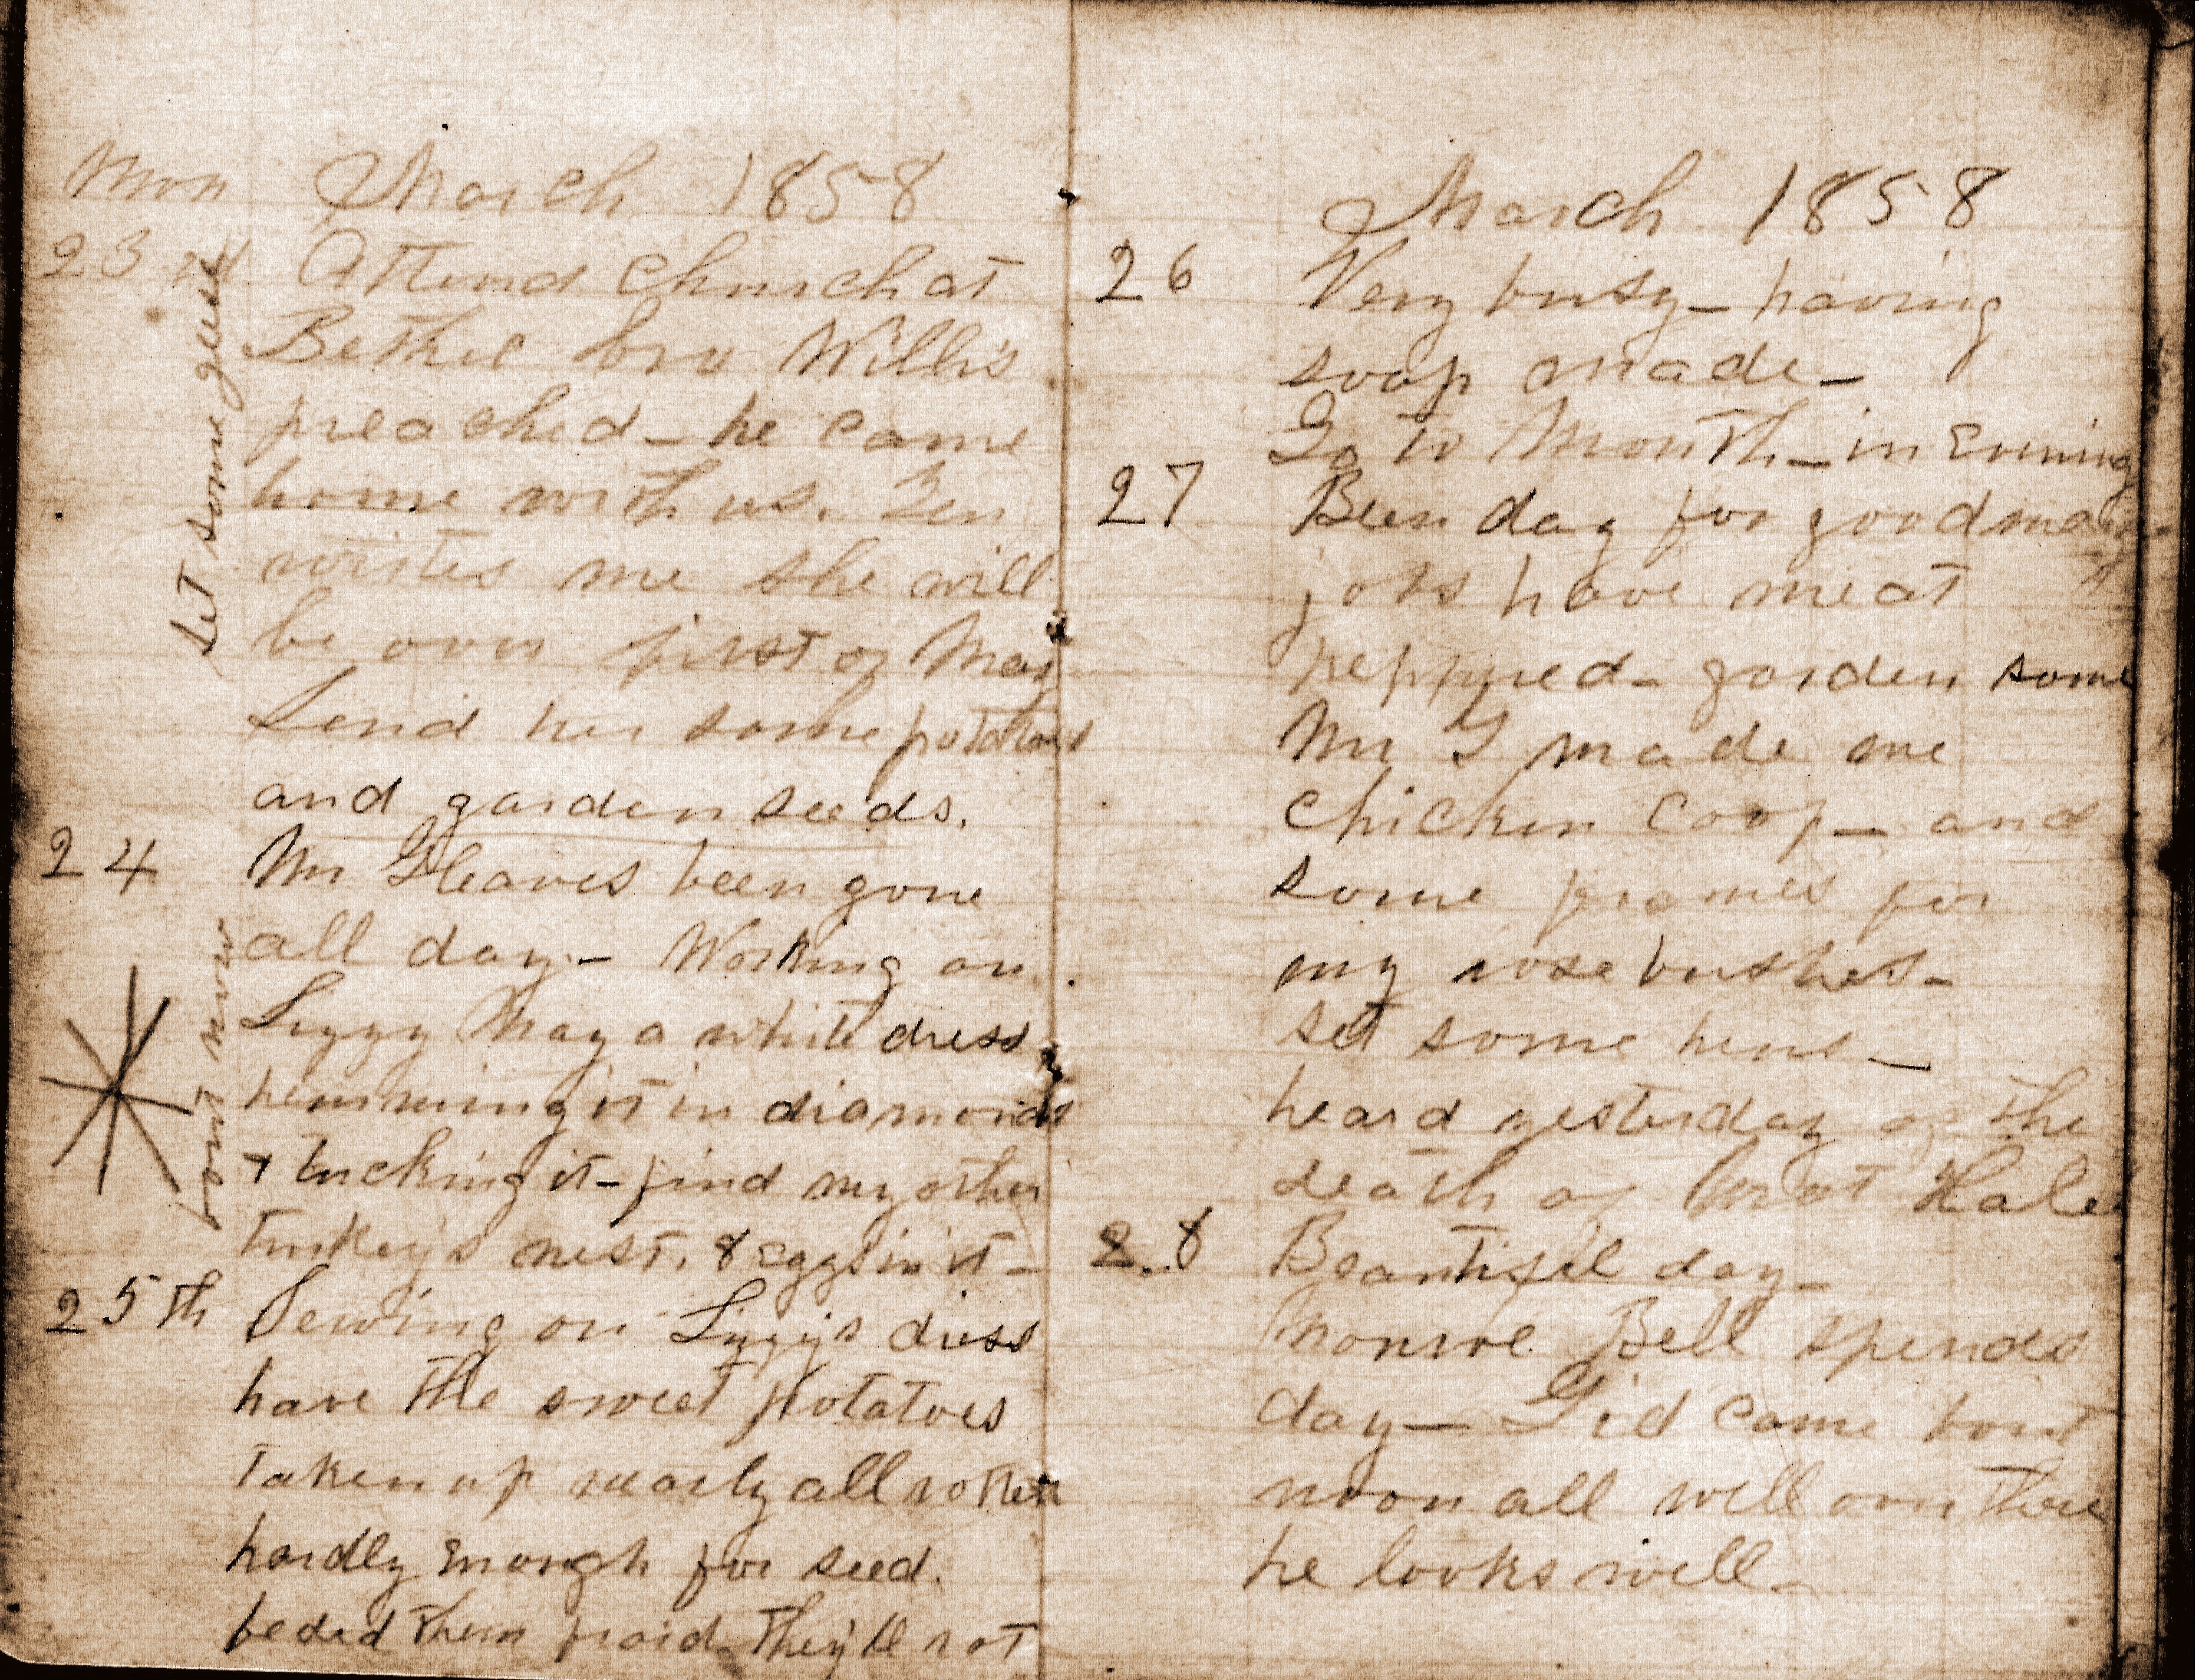 Mon March 1858
23rd Attend Church at
Bethel bro Willis
preached - he came
home with us.
writes me she will
be over first of May
Send her some potatoes
and garden seeds.
set some geese
24 Mr Gleaves been gone
all day - Working on
Lizzy May a white dress
hemming it in diamonds
& tucking it - find my other
turkey's nest. 8 eggs in it -
now
25th Sewing on Lizzys dress
have the sweet potatoes
taken up nearly all rotten
hardly enough for seed.
beded them fraid they'll rot
March 1858
26 Very busy - having
soap made -
Go to Mouth - in Evening
27 Been day for good many
jobs have meat
peppered - garden some
Mr G made me
chicken coop - and
some frames for
my rose bushes -
set some hens -
heard yesterday of the
death of Hale
28 Beautiful day -
Monroe Bell spends
day - Gid came bout
noon all well over there
he looks well -